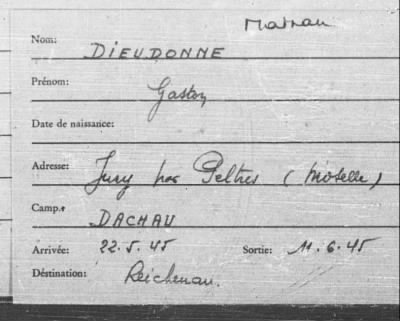 Matrau
Nom: DIEUDONNE
Prénom: Gaston
Date de naissance:
Adresse: Jury par Peltres (Moselle)
Camp. DACHAU
Arrivée: 22.5.45 Sortie: 11.6.45
Déstination: Reichenau.